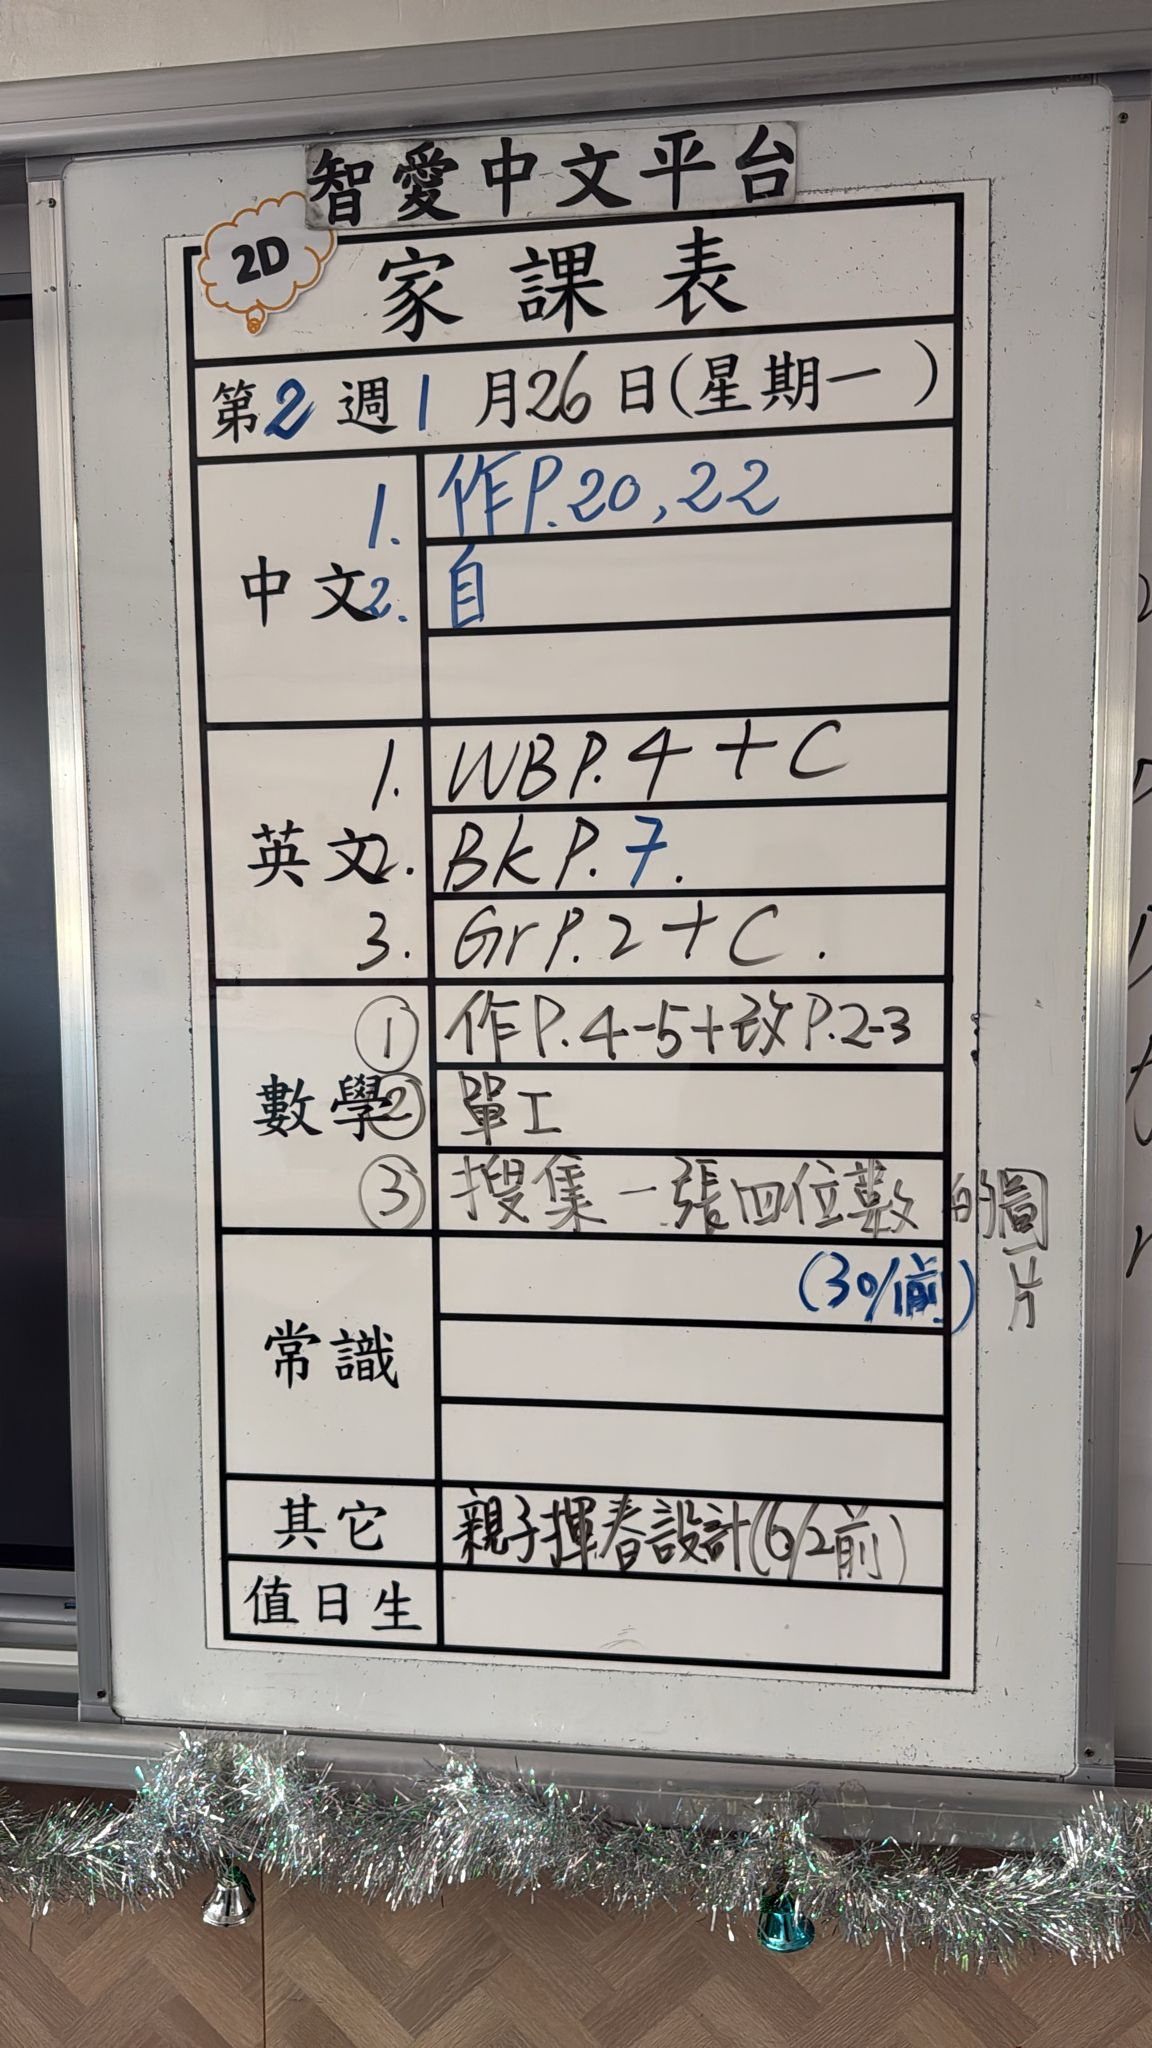 智愛中文平台
2D
家課表
第2週1月26日(星期一)
中文
1. 作P.20,22
2. 自
英文
1. WB P.4 + C
2. Bk P.7.
3. Gr P.2 + C.
數學
① 作P.4-5+改P.2-3
② 單工
③ 搜集一張四位數的圖片
(30/1前)
常識
其它
親子揮春設計(6/2前)
值日生